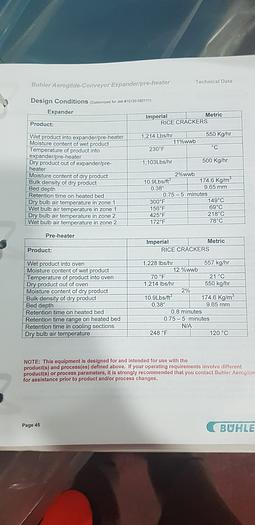 Buhler Aeroglide-Conveyor Expander/pre-heater Technical Data
Design Conditions
Expander
Imperial Metric
Product: RICE CRACKERS
Wet product into expander/pre-heater 1,214 Lbs/hr 550 Kg/hr
Moisture content of wet product 11%wwb
Temperature of product into expander/pre-heater 230°F °C
Dry product out of expander/pre-heater 1,103Lbs/hr 500 Kg/hr
Moisture content of dry product 2%wwb
Bulk density of dry product 10.9Lbs/ft³ 174.6 Kg/m³
Bed depth 0.38" 9.65 mm
Retention time on heated bed 0.75 – 5 minutes
Dry bulb air temperature in zone 1 300°F 149°C
Wet bulb air temperature in zone 1 156°F 69°C
Dry bulb air temperature in zone 2 425°F 218°C
Wet bulb air temperature in zone 2 172°F 78°C
Pre-heater
Imperial Metric
Product: RICE CRACKERS
Wet product into oven 1,228 lbs/hr 557 kg/hr
Moisture content of wet product 12 %wwb
Temperature of product into oven 70 °F 21 °C
Dry product out of oven 1,214 lbs/hr 550 kg/hr
Moisture content of dry product 2%
Bulk density of dry product 10.9Lbs/ft³ 174.6 Kg/m³
Bed depth 0.38" 9.65 mm
Retention time on heated bed 0.8 minutes
Retention time range on heated bed 0.75 – 5 minutes
Retention time in cooling sections N/A
Dry bulb air temperature 248 °F 120 °C
NOTE: This equipment is designed for and intended for use with the
product(s) and process(es) defined above. If your operating requirements involve different
product(s) or process parameters, it is strongly recommended that you contact Buhler Aeroglide
for assistance prior to product and/or process changes.
Page 45
BÜHLE